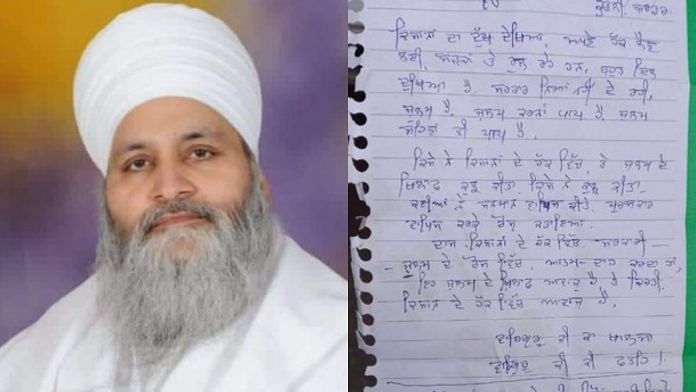 ਕਿਸਾਨਾਂ ਦਾ ਦੁੱਖ ਦੇਖਿਆ, ਆਪਣੇ ਹੱਕ ਲੈਣ
ਲਈ, ਸੜਕਾਂ ਤੇ ਰੁਲ ਰਹੇ ਹਨ, ਬਹੁਤ ਦਿਲ
ਦੁਖਿਆ ਹੈ. ਸਰਕਾਰ ਨਿਆਂ ਨਹੀਂ ਦੇ ਰਹੀ,
ਜੁਲਮ ਹੈ. ਜੁਲਮ ਕਰਨਾ ਪਾਪ ਹੈ. ਜੁਲਮ
ਸਹਿਣਾ ਵੀ ਪਾਪ ਹੈ.
ਕਿਸੇ ਨੇ ਕਿਸਾਨਾਂ ਦੇ ਹੱਕ ਵਿੱਚ, ਤੇ ਜੁਲਮ ਦੇ
ਖਿਲਾਫ ਕੁਝ ਕੀਤਾ ਕਿਸੇ ਨੇ ਕੁਝ ਕੀਤਾ.
ਕਈਆਂ ਨੇ ਸਨਮਾਨ ਵਾਪਿਸ ਕੀਤੇ, ਪੁਰਸਕਾਰ
ਵਾਪਿਸ ਕਰਕੇ ਰੋਸ ਜਤਾਇਆ.
ਦਾਸ ਕਿਸਾਨਾਂ ਦੇ ਹੱਕ ਵਿੱਚ ਸਰਕਾਰੀ —
— ਜੁਲਮ ਦੇ ਰੋਸ ਵਿੱਚ, ਆਤਮ-ਦਾਹ ਕਰਦਾ ਹਾਂ,
ਇਹ ਜੁਲਮ ਦੇ ਖਿਲਾਫ ਆਵਾਜ਼ ਹੈ, ਤੇ ਕਿਰਤੀ
ਕਿਸਾਨ ਦੇ ਹੱਕ ਵਿੱਚ ਆਵਾਜ਼ ਹੈ.
ਵਾਹਿਗੁਰੂ ਜੀ ਕਾ ਖਾਲਸਾ
ਵਾਹਿਗੁਰੂ ਜੀ ਕੀ ਫਤਹਿ।